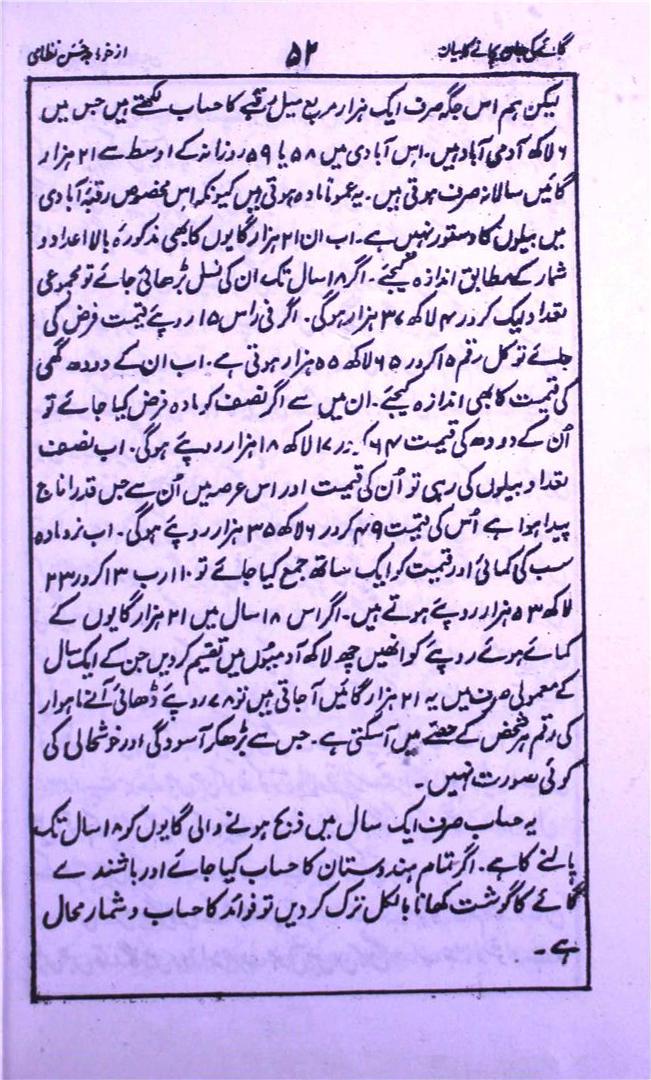 گائے کی جان بچانے کا بیان
۵۲
از خواجہ حسن نظامی
لیکن ہم اس جگہ صرف ایک ہزار مربع میل رقبے کا حساب لکھتے ہیں جس میں
۶ لاکھ آدمی آباد ہیں۔ اس آبادی میں ۵۸ یا ۵۹ روزانہ کے اوسط سے ۲۱ ہزار
گائیں سالانہ صرف ہوتی ہیں۔ یہ عموماً مادہ ہوتی ہیں کیونکہ اس مخصوص رقبۂ آبادی
میں بیلوں کا دستور نہیں ہے۔ اب ان ۲۱ ہزار گایوں کا بھی مذکورہ بالا اعداد و
شمار کے مطابق اندازہ کیجئے۔ اگر ۱۸ سال تک ان کی نسل بڑھائی جائے تو مجموعی
تعداد ایک کرور ۴ لاکھ ۳۷ ہزار ہوگی۔ اگر فی راس ۱۵ روپئے قیمت فرض کی
جائے تو کل رقم ۱۵ کرور ۶۵ لاکھ ۵۵ ہزار ہوتی ہے۔ اب ان کے دودھ گھی
کی قیمت کا بھی اندازہ کیجئے۔ ان میں سے اگر نصف کو مادہ فرض کیا جائے تو
اُن کے دودھ کی قیمت ۶۴ ۱۷ لاکھ ۱۸ ہزار روپئے ہوگی۔ اب نصف
تعداد بیلوں کی رہی تو اُن کی قیمت اور اس عرصہ میں اُن سے جس قدر اناج
پیدا ہوا ہے اُس کی قیمت ۴۹ کرور ۶ لاکھ ۳۵ ہزار روپئے ہوگی۔ اب نر و مادہ
سب کی کمائی اور قیمت کو ایک ساتھ جمع کیا جائے تو ۱۰ ارب ۱۳ کرور ۲۳
لاکھ ۵۳ ہزار روپئے ہوتے ہیں۔ اگر اس ۱۸ سال میں ۲۱ ہزار گایوں کے
کمائے ہوئے روپئے کو انھیں چھ لاکھ آدمیوں میں تقسیم کردیں جن کے ایک سال
کے معمولی صرف میں یہ ۲۱ ہزار گائیں آجاتی ہیں تو ۷۸ روپئے ڈھائی آنے ماہوار
کی رقم ہر شخص کے حصے میں آسکتی ہے۔ جس سے بڑھکر آسودگی اور خوشحالی کی
کوئی صورت نہیں۔
یہ حساب صرف ایک سال میں ذبح ہونے والی گایوں کو ۱۸ سال تک
پالنے کا ہے۔ اگر تمام ہندوستان کا حساب کیا جائے اور باشندے
گائے کا گوشت کھانا بالکل ترک کردیں تو فوائد کا حساب و شمار محال
ہے۔